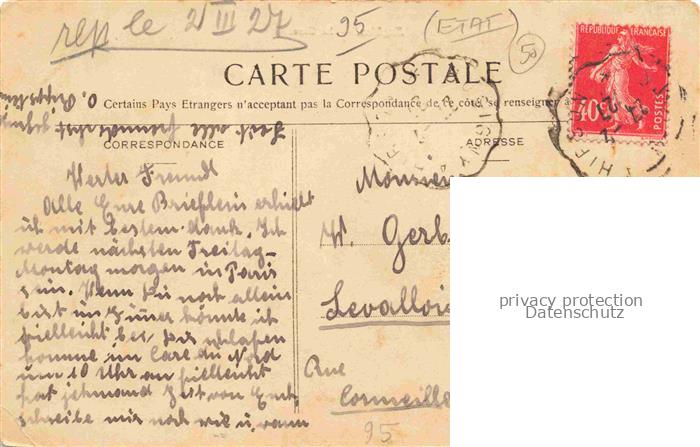 rep le 2 III 27
95
(ETAT)
50
REPUBLIQUE FRANÇAISE
POSTES
40c
CARTE POSTALE
Certains Pays Etrangers n'acceptent pas la Correspondance de ce côté, se renseigner à
Seid alle freundlichst
CORRESPONDANCE
ADRESSE
Werter Freund
Alle Eure Brieflein erhielt
ich mit bestem dank. Ich
werde nächsten Freitag-
Montag morgen in Paris
sein. Wenn Du noch allein
bist im Zimer könnte ich
fielleicht bei Dir schlafen
komme im Care du Nord
um 10 Uhr an fielleicht
hat jehmand Zeit von Euch
schreibe mir noch wie u. wann
Monsieur
W. Gerb
Levallois
Rue
Cormeille
95
privacy protection
Datenschutz